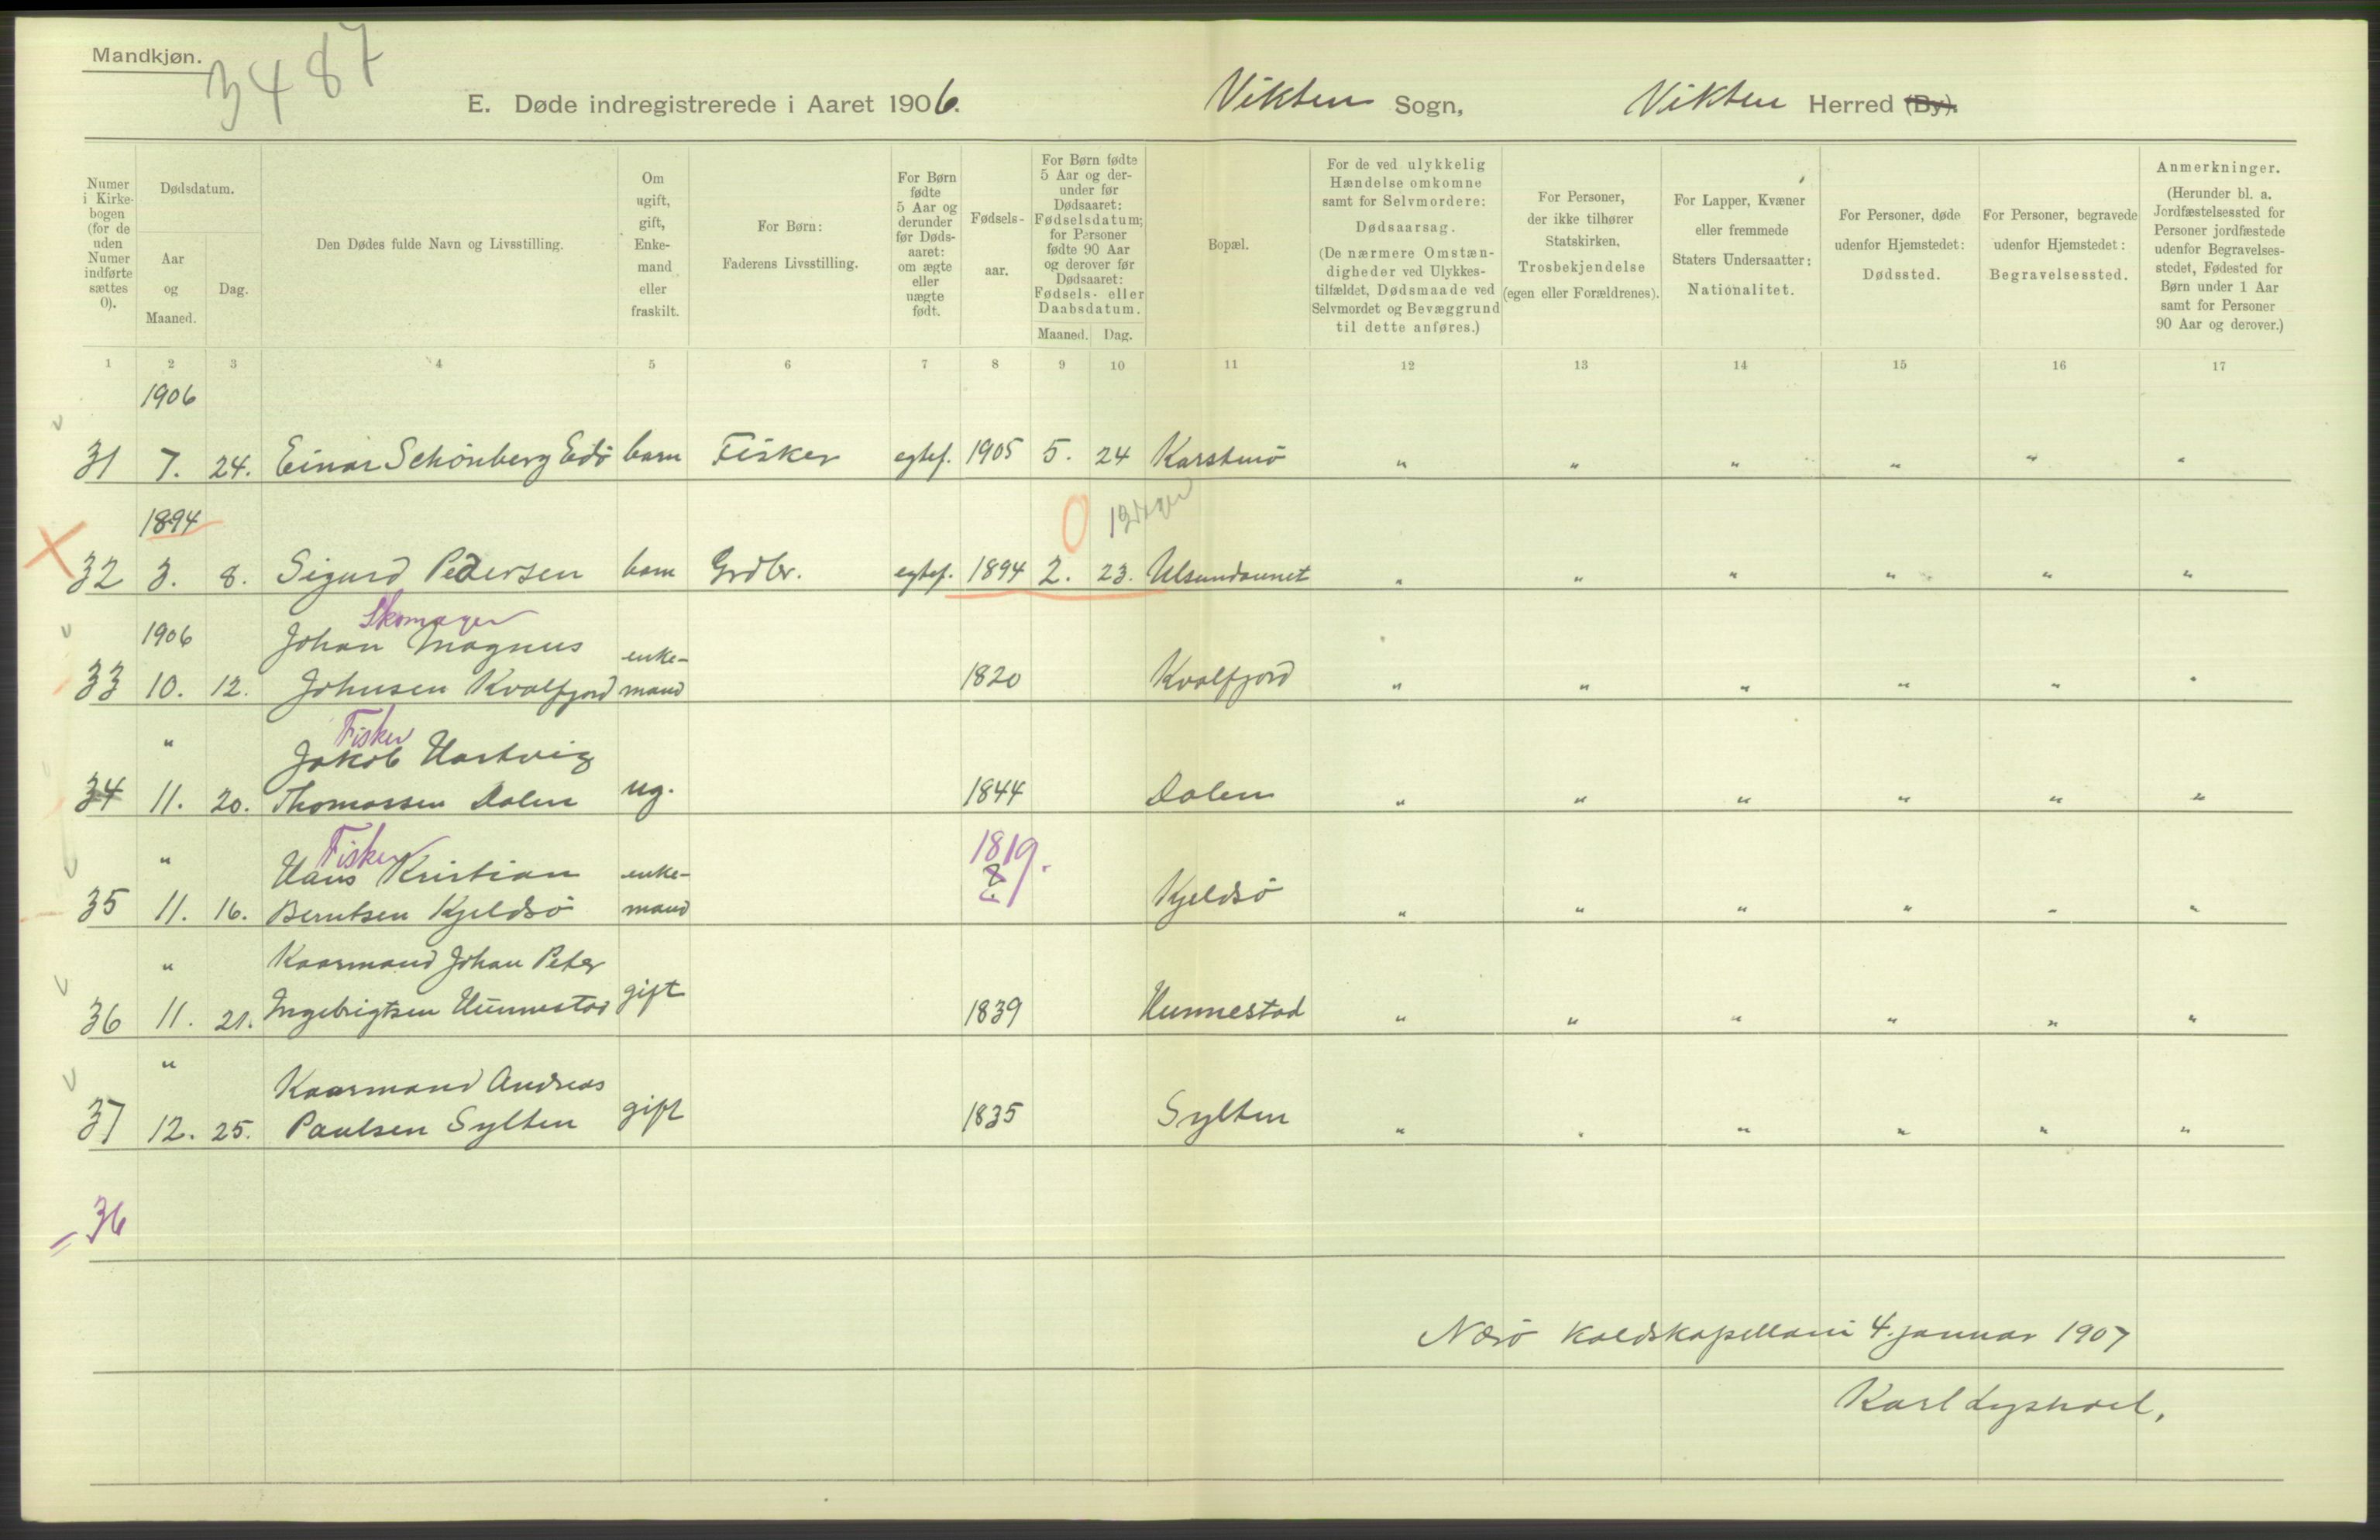 Mandkjøn.
3487
E. Døde indregistrerede i Aaret 1906.
Vikten Sogn,
Vikten Herred (By).
Numer i Kirkebogen (for de uden Numer indførte sættes 0).
Dødsdatum.
Aar og Maaned.
Dag.
Den Dødes fulde Navn og Livsstilling.
Om ugift, gift, Enkemand eller fraskilt.
For Børn: Faderens Livsstilling.
For Børn fødte 5 Aar og derunder før Dødsaaret: om ægte eller uægte født.
Fødselsaar.
For Børn fødte 5 Aar og derunder før Dødsaaret: Fødselsdatum; for Personer fødte 90 Aar og derover før Dødsaaret: Fødsels- eller Daabsdatum.
Maaned. Dag.
Bopæl.
For de ved ulykkelig Hændelse omkomne samt for Selvmordere: Dødsaarsag. (De nærmere Omstændigheder ved Ulykkestilfældet, Dødsmaade ved Selvmordet og Bevæggrund til dette anføres.)
For Personer, der ikke tilhører Statskirken, Trosbekjendelse (egen eller Forældrenes).
For Lapper, Kvæner eller fremmede Staters Undersaatter: Nationalitet.
For Personer, døde udenfor Hjemstedet: Dødssted.
For Personer, begravede udenfor Hjemstedet: Begravelsessted.
Anmerkninger. (Herunder bl. a. Jordfæstelsessted for Personer jordfæstede udenfor Begravelsesstedet, Fødested for Børn under 1 Aar samt for Personer 90 Aar og derover.)
1 2 3 4 5 6 7 8 9 10 11 12 13 14 15 16 17
1906
31 7. 24. Einar Schönberg Edö barn Fisker egtef. 1905 5. 24 " " " " " "
1894
0
32 3. 8. Sigurd Pedersen barn Grdbr. egtef. 1894 2. 23. Ulsundaunet " " " " " "
Skomager
1906 Johan Magnus enke-
33 10. 12. Johnsen Kvalfjord mand 1820 Kvalfjord " " " " " "
Fisker
" Jakob Hartvig
34 11. 20. Thomassen Dalen ug. 1844 Dalen " " " " " "
Fisker 1819.
" Hans Kristian enke- ?
35 11. 16. Berntsen Kjeldsö mand Kjeldsö " " " " " "
" Kaarmand Johan Peter
36 11. 21. Ingebrigtsen Hunnestad gift 1839 Hunnestad " " " " " "
" Kaarmand Andreas
37 12. 25. Paulsen Sylten gift 1835 Sylten " " " " " "
= 36
Nærö Kaldskapellani 4. januar 1907